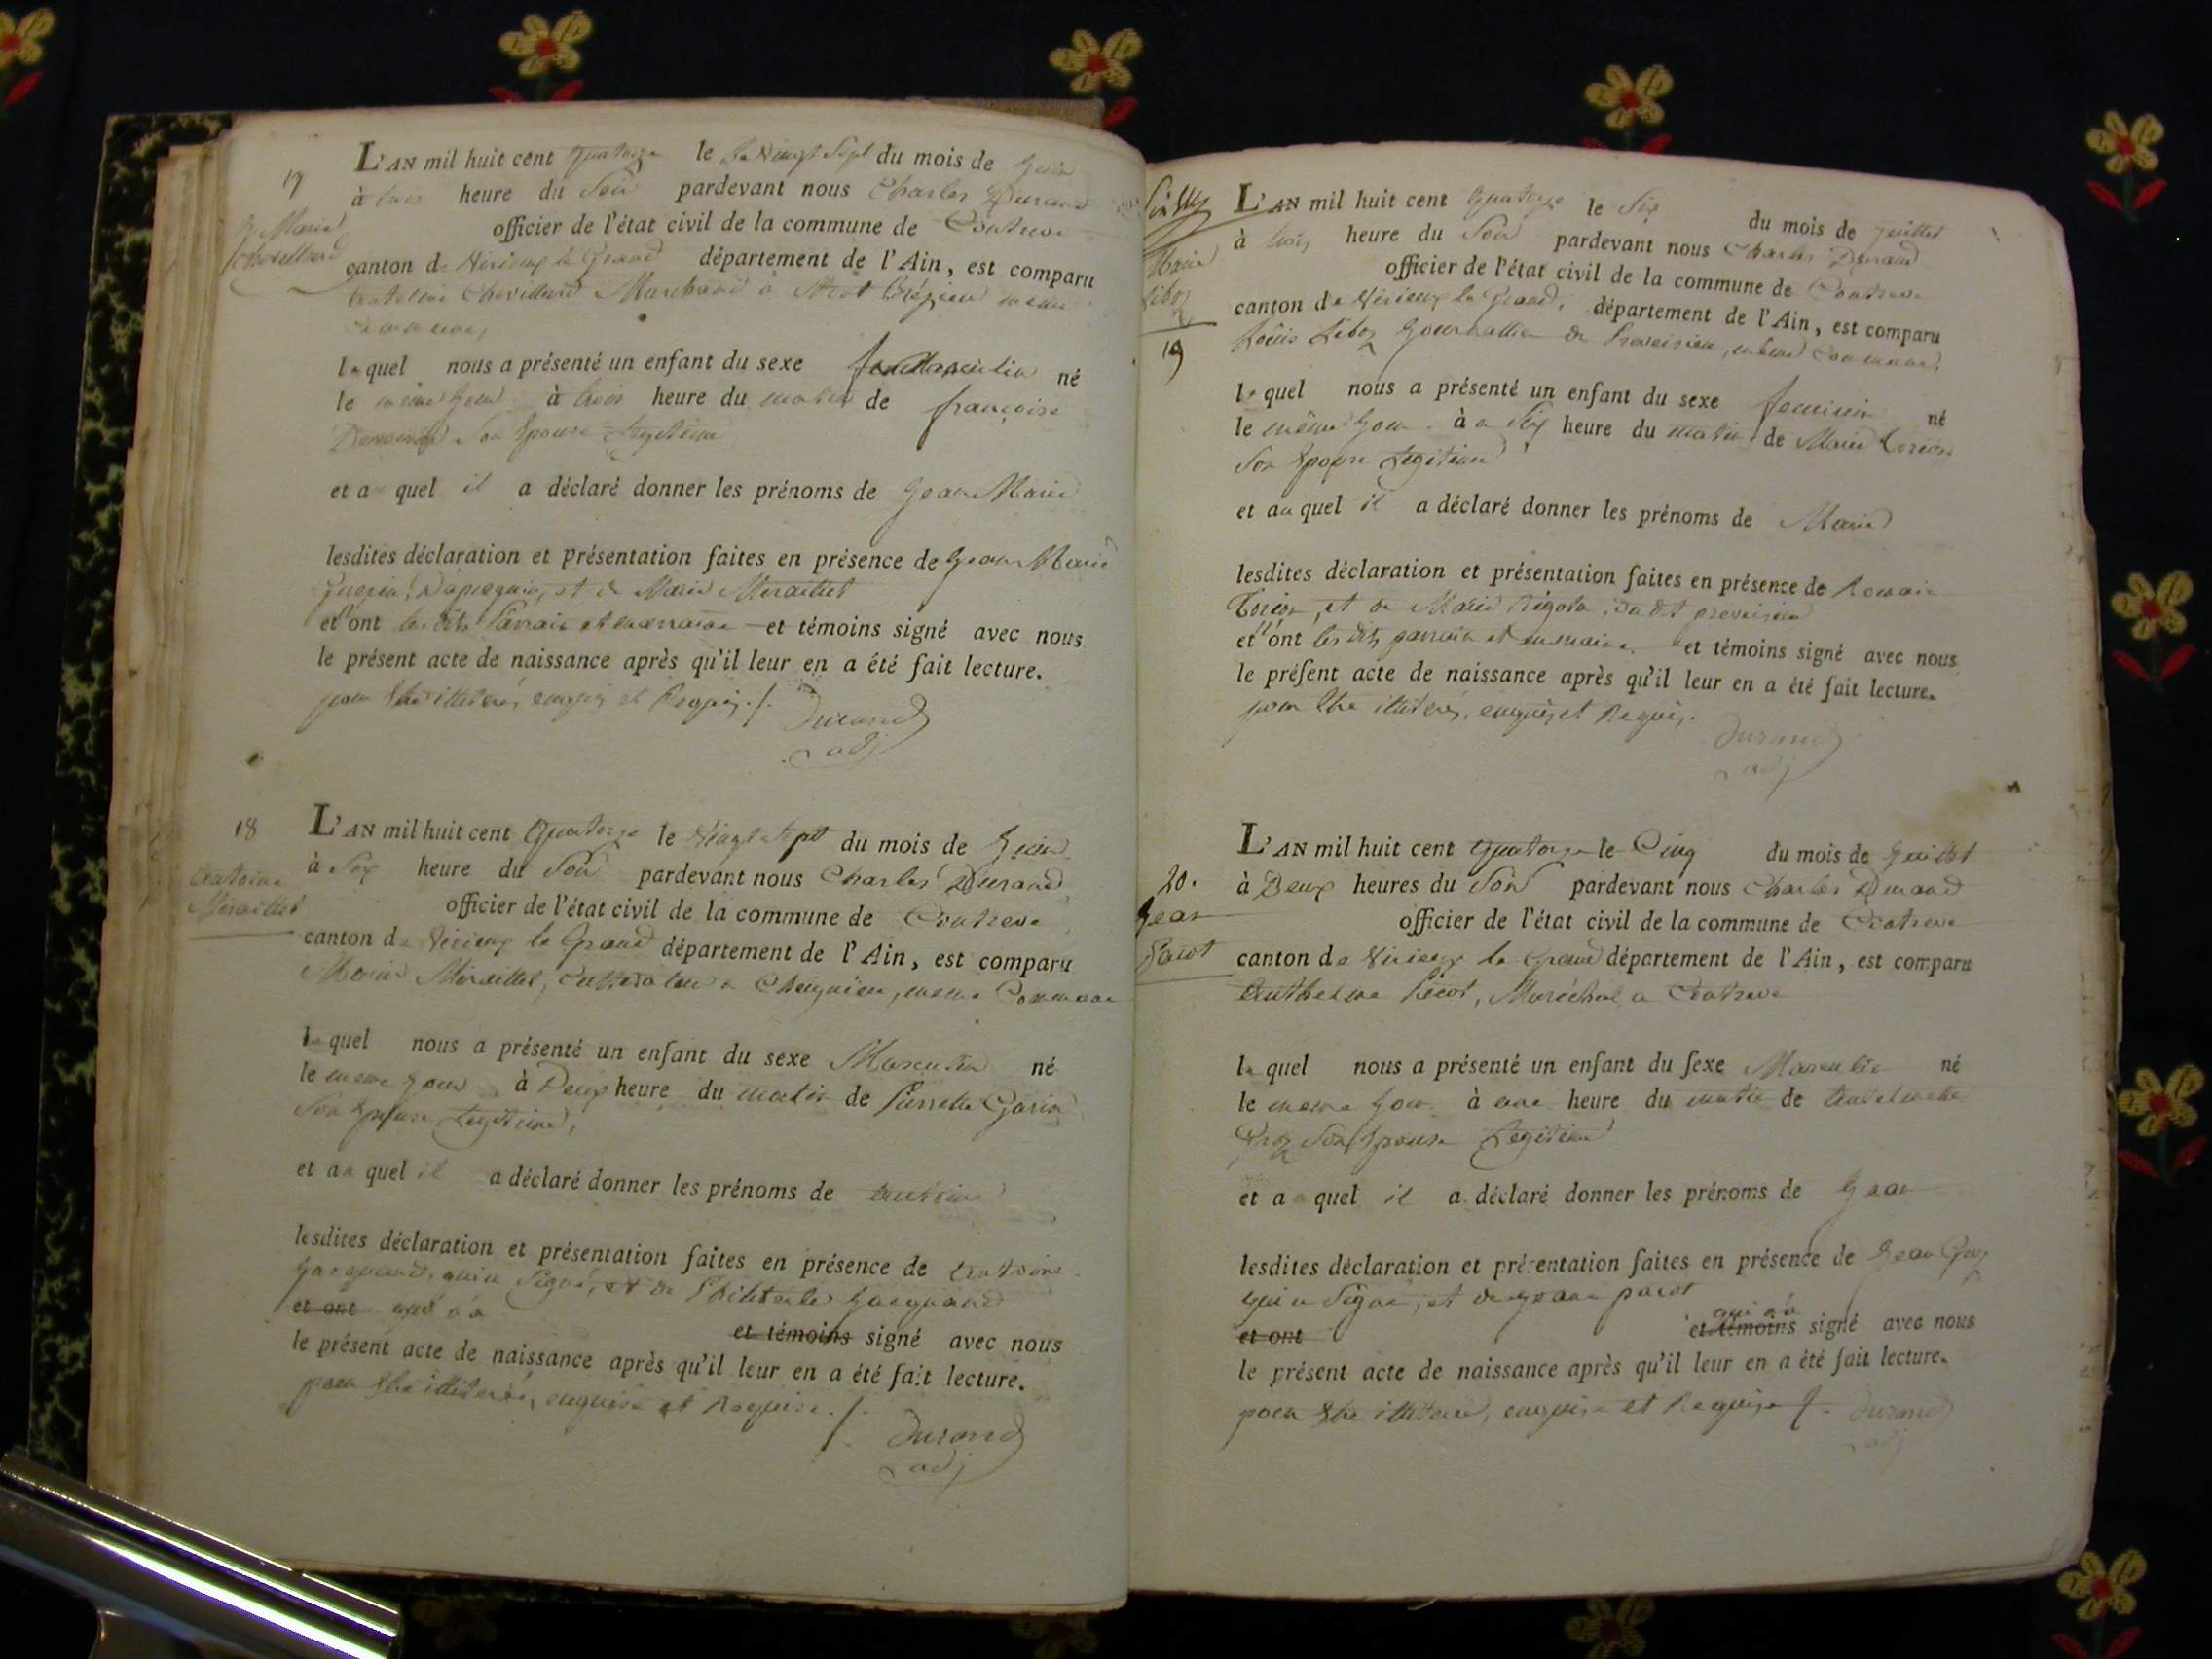 17
J. Marie
Chevillard
L'AN mil huit cent quatorze le le vingt Sept du mois de Juin
à trois heure du Soir pardevant nous Charles Durand
officier de l'état civil de la commune de Contrevoz
canton de Virieux le Grand département de l'Ain, est comparu
Chevillard Marchand à même
Commune,
lequel nous a présenté un enfant du sexe Masculin né
le même jour à trois heure du matin de françoise
Son Epouse Légitime
et au quel il a déclaré donner les prénoms de Jean Marie
lesdites déclaration et présentation faites en présence de Jean Marie
et de Marie Miraillet
et ont les dits Parrain et marraine et témoins signé avec nous
le présent acte de naissance après qu'il leur en a été fait lecture.
pour être illiterés, enquis et Requis ./.
Durand
adj
18
Antoine
Miraillet
L'AN mil huit cent Quatorze le Vingt Sept du mois de Juin
à Six heure du Soir pardevant nous Charles Durand
officier de l'état civil de la commune de Contrevoz
canton de Virieux le Grand département de l'Ain, est comparu
Marin Miraillet, Cultivateur a Cheignieu, même Commune
lequel nous a présenté un enfant du sexe Masculin né
le meme jour à Deux heure du matin de Pierrette Garin
Son Epouse Légitime,
et au quel il a déclaré donner les prénoms de antoine
lesdites déclaration et présentation faites en présence de Antoine
Jacquand, qui a Signé, et de Jacquand
et ont qui n'a et témoins signé avec nous
le présent acte de naissance après qu'il leur en a été fait lecture.
pour être illiterée, enquise et Requise ./.
Durand
adj
Marie
Liboz
19
L'AN mil huit cent Quatorze le Six du mois de Juillet
à trois heure du Soir pardevant nous Charles Durand
officier de l'état civil de la commune de Contrevoz
canton de Virieux le Grand, département de l'Ain, est comparu
Louis Liboz Journallier de Preveisieu, même Commune,
lequel nous a présenté un enfant du sexe feminin né
le même Jour à Six heure du matin de Marie
Son Epouse Légitime
et au quel il a déclaré donner les prénoms de Marie
lesdites déclaration et présentation faites en présence de Romain
et de Marie dudit preveisieu
et ont les dits parrain et marraine et témoins signé avec nous
le présent acte de naissance après qu'il leur en a été fait lecture.
pour être illiterés, enquis et Requis.
Durand
adj
20.
Jean
Pacot
L'AN mil huit cent quatorze le Cinq du mois de Juillet
à Deux heures du Soir pardevant nous Charles Durand
officier de l'état civil de la commune de Contrevoz
canton de Virieux le Grand département de l'Ain, est comparu
Anthelme Pacot, Maréchal a Contrevoz
lequel nous a présenté un enfant du sexe Masculin né
le meme Jour à une heure du matin de
Son Epouse Légitime
et au quel il a déclaré donner les prénoms de Jean
lesdites déclaration et présentation faites en présence de Jean
qui a Signé, et de pacot
qui n'a
et ont et témoins signé avec nous
le présent acte de naissance après qu'il leur en a été fait lecture.
pour être illiterée, enquise et Requise ./.
Durand
adj